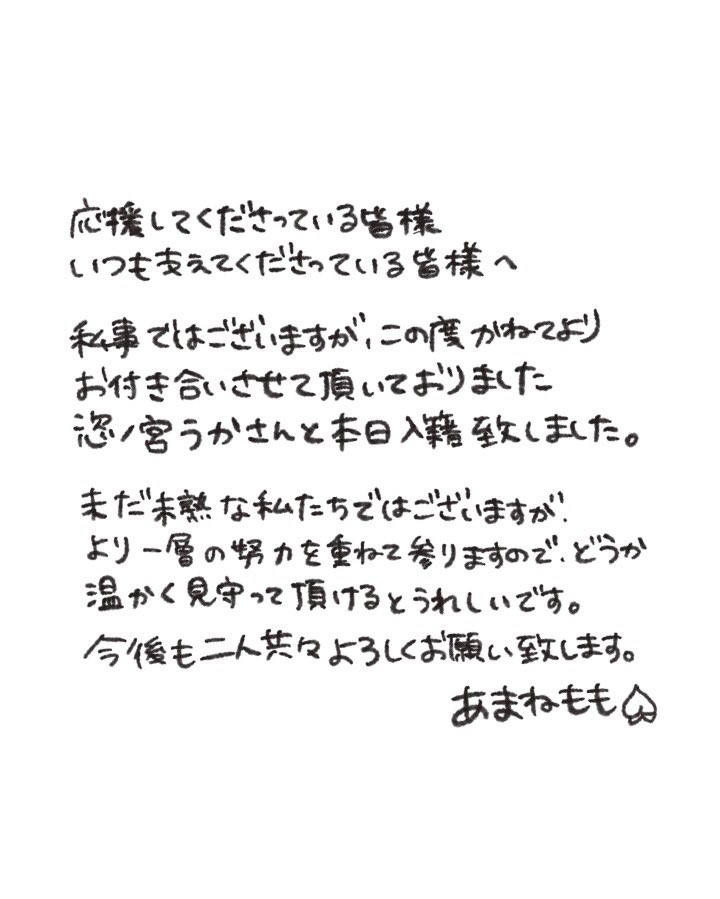 応援してくださっている皆様
いつも支えてくださっている皆様へ
私事ではございますが、この度かねてより
お付き合いさせて頂いておりました
恣ノ宮うかさんと本日入籍致しました。
まだ未熟な私たちではございますが、
より一層の努力を重ねて参りますので、どうか
温かく見守って頂けるとうれしいです。
今後も二人共々よろしくお願い致します。
あまねもも♤